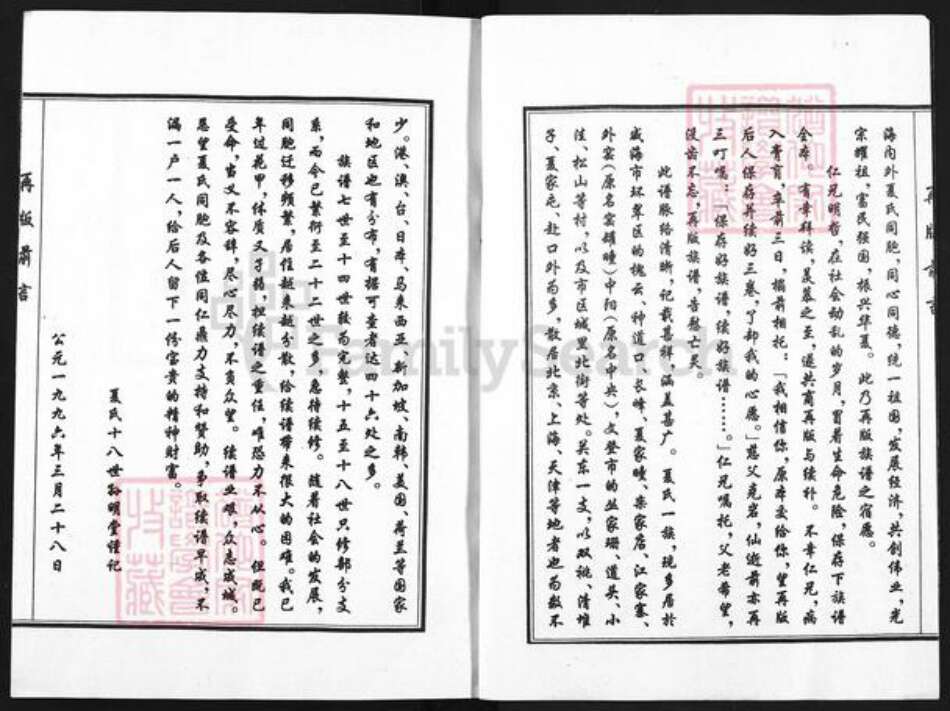 再版前言
海内外夏氏同胞,同心同德,统一祖国,发展经济,共创伟业,光
宗耀祖,富民强国,振兴华夏。此乃再版族谱之宿愿。
仁兄明哲,在社会动乱的岁月,冒着生命危险,保存下族谱
全本。有幸拜读,羡慕之至,遂共商再版与续补。不幸仁兄,病
入膏肓,卒前三日,榻前相托:「我相信你,原本交给你,望再版
后人保存并续好三卷,了却我的心愿。」慈父克岩,仙逝前亦再
三叮嘱:「保存好族谱,续好族谱……。」仁兄嘱托,父老希望,
没齿不忘,再版族谱,告慰亡灵。
此谱脉络清晰,记载甚祥,涵盖甚广。夏氏一族,现多居於
威海市环翠区的槐云、神道口、长峰、夏家疃、柴家店、江家寨、
外窑(原名窑罐疃)中阳(原名中央),文登市的丛家埠、道头、小
洼、松山等村,以及市区城里北街等处。关东一支,以双城、清堆
子、夏家屯、赴口外为多,散居北京、上海、天津等地者也为数不
少。港、澳、台、日本、马来西亚、新加坡、南韩、美国、荷兰等国家
和地区也有分布,有据可查者达四十六处之多。
族谱七世至十四世较为完整,十五至十八世只修部分支
系,而今已繁衍至二十二世之多,急待续修。随着社会的发展,
同胞迁移频繁,居住越来越分散,给续谱带来很大的困难。我已
年过花甲,体质又孑弱,担续谱之重任,唯恐力不从心。但既已
受命,当义不容辞,尽心尽力,不负众望。续谱业艰,众志成城。
恳望夏氏同胞及各位同仁鼎力支持和赞助,争取续谱早成,不
漏一户一人,给后人留下一份宝贵的精神财富。
夏氏十八世孙明堂谨记
公元一九九六年三月二十八日
再版前言
FamilySearch